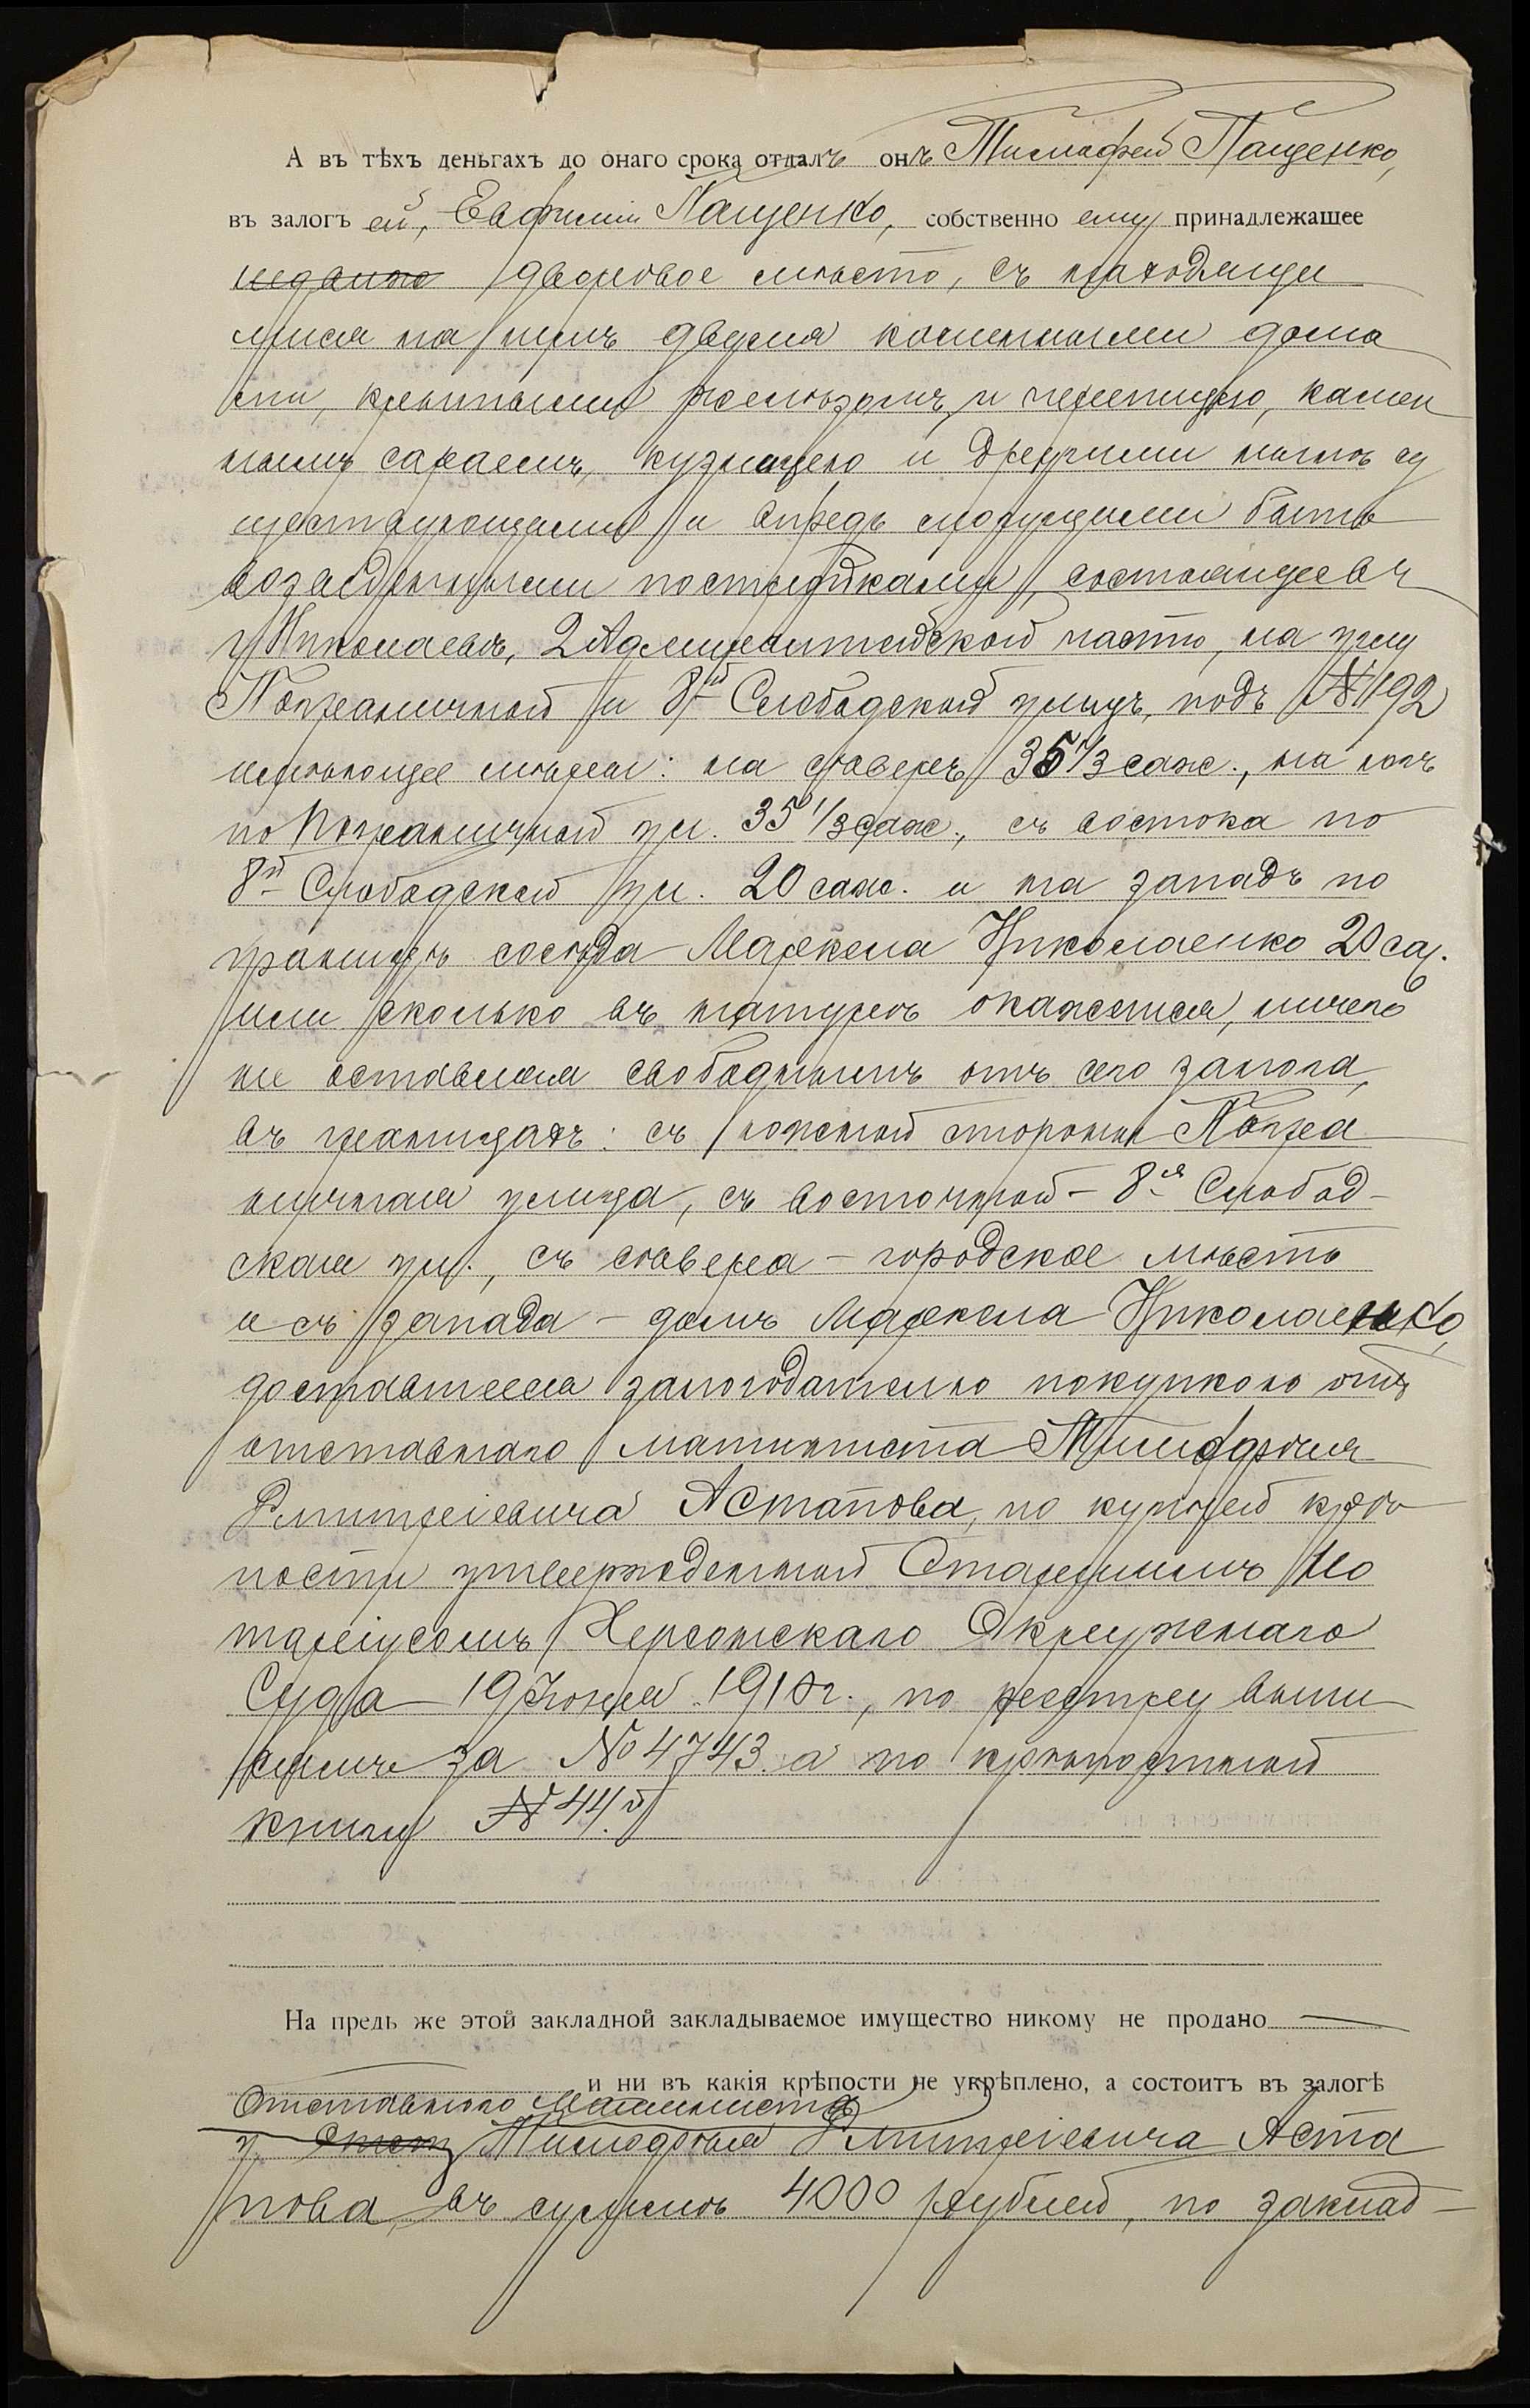 А въ тѣхъ деньгахъ до онаго срока отдалъ онъ Тимофей Пащенко,
въ залогъ ей, Евфиміи Пащенко, собственно ему принадлежащее
дворовое мѣсто, съ находящи
мися на немъ двумя каменными дома
ми, крытыми желѣзомъ и черепицею, камен
нымъ сараемъ, кузнецею и другими нынѣ су
ществующими и впредь могущими быть
возведенными постройками, состоящее въ
г. Николаевѣ, 2 Адмиралтейской части, на углу
Пограничной и 8й Слободской улицъ, подъ № 192
имѣющее мѣрою: на сѣверъ 35 1/3 саж., на югъ
по Пограничной ул. 35 1/3 саж., съ востока по
8й Слободской ул. 20 саж. и на западъ по
границѣ сосѣда Маркела Николаенко 20 са.
или сколько въ натурѣ окажется, ничего
не оставляя свободнымъ отъ сего залога,
въ границахъ: съ южной стороны Погра
ничная улица, съ восточной – 8я Слобод-
ская ул., съ сѣвера – городское мѣсто
и съ запада – домъ Маркела Николаенко,
доставшееся залогодателю покупкою отъ
отставного машиниста Тимофѣя
Дмитріевича Астапова, по купчей крѣ
пости утвержденной Старшимъ Но
таріусомъ Херсонскаго Окружнаго
Суда 19 Іюня 1910 г., по реестру выпи
симъ за № 4743 а по крѣпостной
книгѣ № 44.й
На предь же этой закладной закладываемое имущество никому не продано
и ни въ какія крѣпости не укрѣплено, а состоитъ въ залогѣ
Отставного Машиниста
у Тимофѣя Дмитріевича Аста
пова, въ суммѣ 4000 рублей, по заклад-